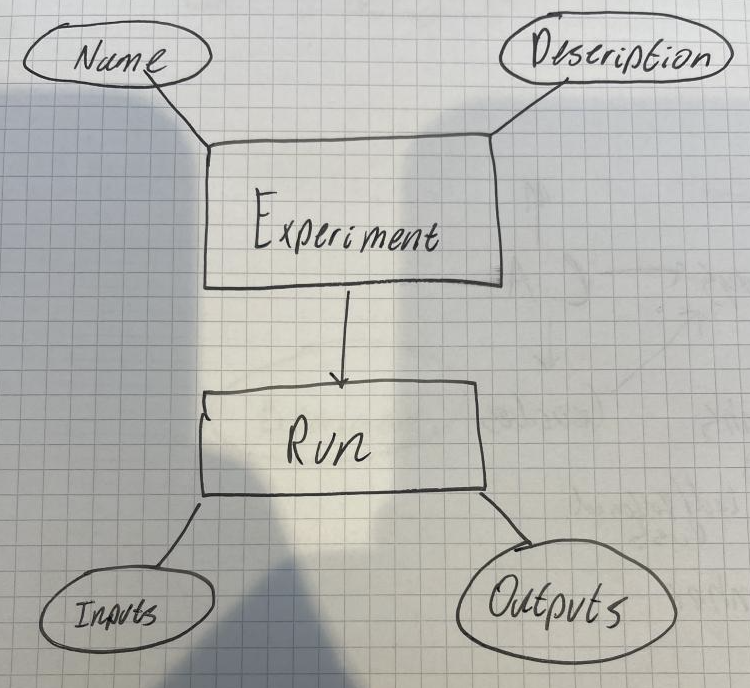 Name
Description
Experiment
Run
Inputs
Outputs